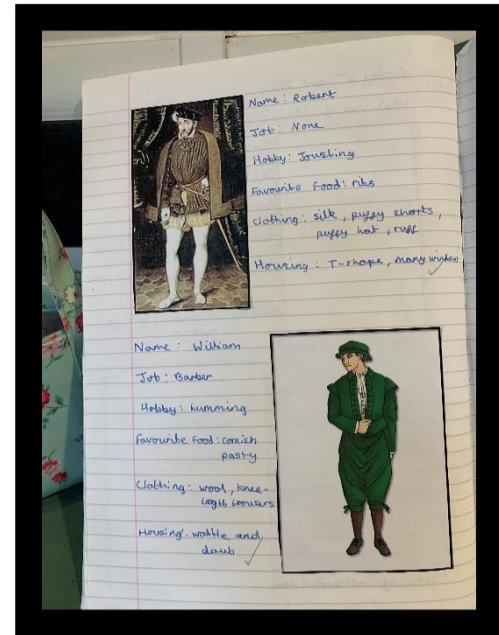 Name: Robert
Job: None
Hobby: Jousting
Favourite Food: ribs
Clothing: silk, puffy shorts,
puffy hat, ruff
Housing: T-shape, many windows
Name: William
Job: Barber
Hobby: humming
Favourite Food: cornish
pasty
Clothing: wool, knee-
length trousers
Housing: wattle and
daub